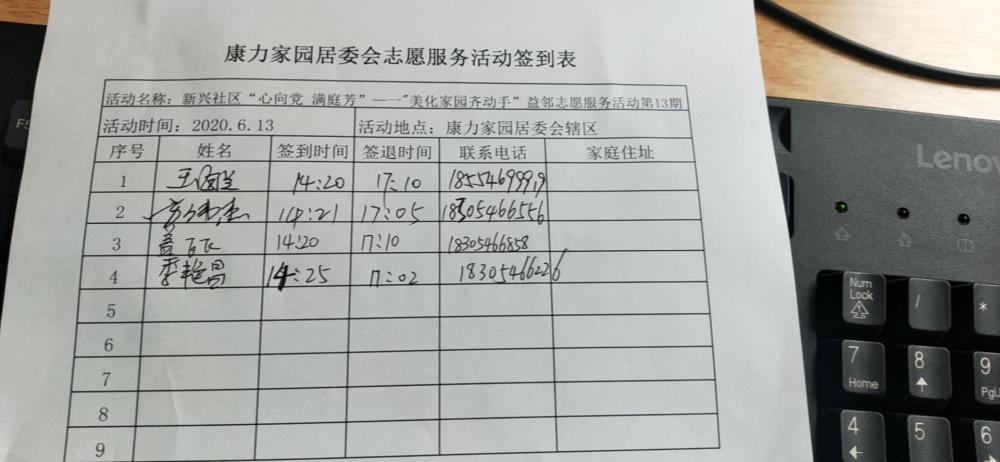 康力家园居委会志愿服务活动签到表
活动名称：新兴社区“心向党 满庭芳”—一"美化家园齐动手”益邻志愿服务活动第13期
活动时间：2020.6.13 活动地点：康力家园居委会辖区
序号 姓名 签到时间 签退时间 联系电话 家庭住址
1 14:20 17:10
2 14:21 17:05 18305466556
3 14:20 17:10 18305466858
4 李艳昌 14:25 17:02 18305466226
5
6
7
8
9
Lenovo
F5
Num Lock
/
*
7 Home
8
9 PgU
4
5
6